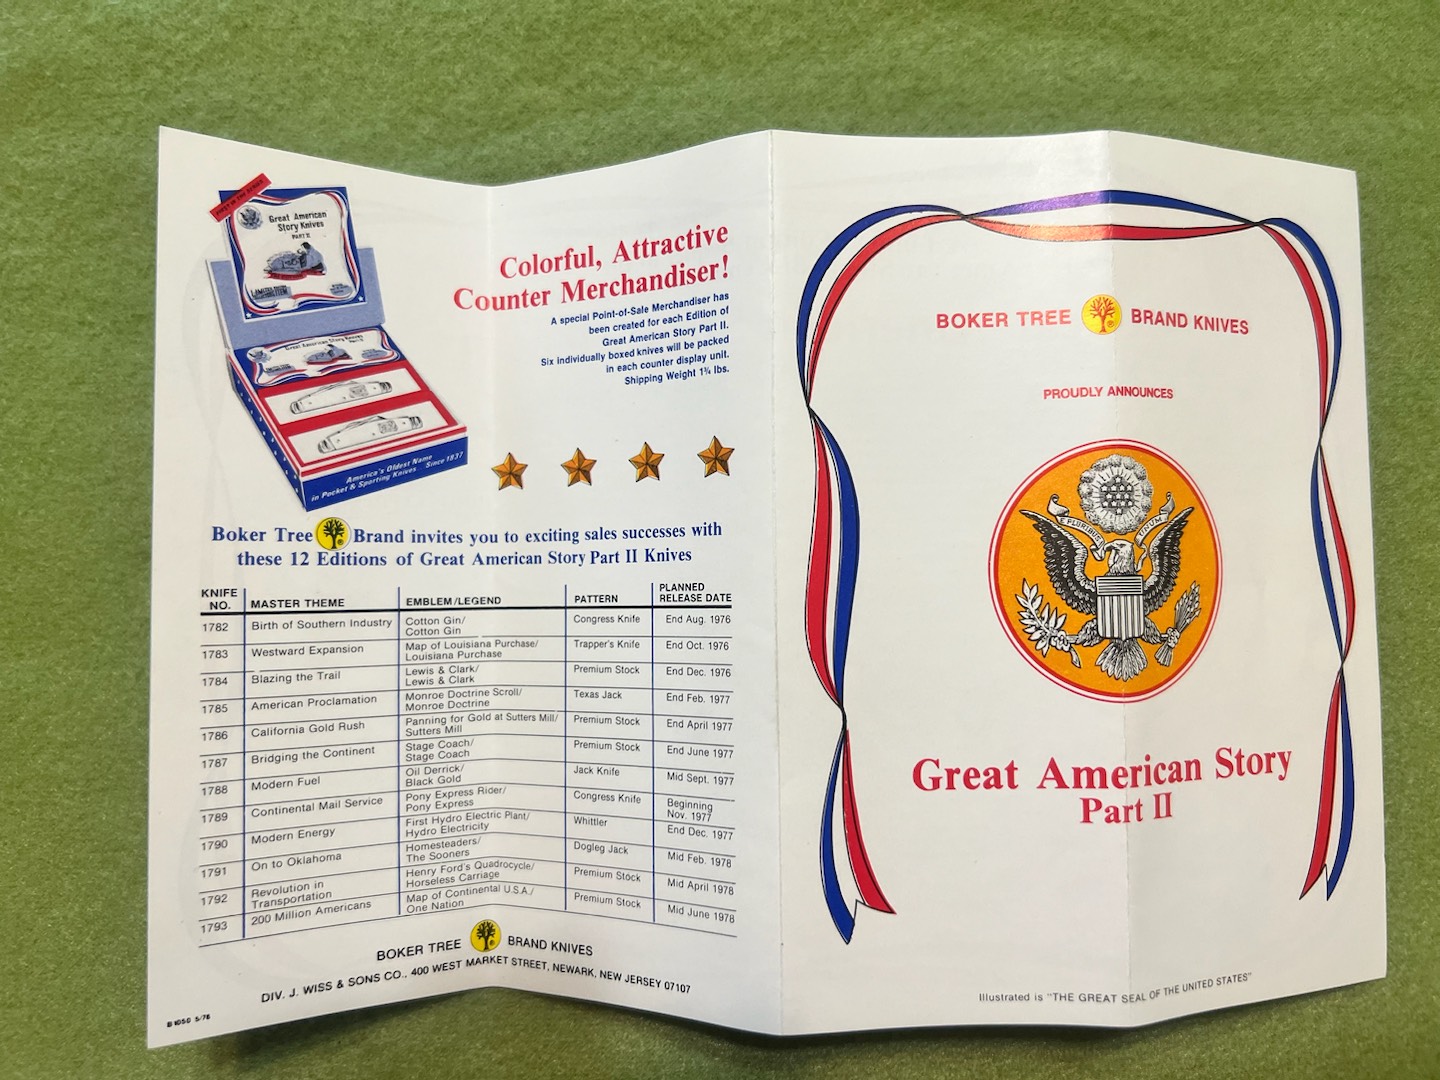 FIRST IN THE SERIES
Great American
Story Knives
PART II
Great American Story Knives
America's Oldest Name
in Pocket & Sporting Knives Since 1837
Colorful, Attractive
Counter Merchandiser!
A special Point-of-Sale Merchandiser has
been created for each Edition of
Great American Story Part II.
Six individually boxed knives will be packed
in each counter display unit.
Shipping Weight 1¾ lbs.
Boker Tree ® Brand invites you to exciting sales successes with
these 12 Editions of Great American Story Part II Knives
KNIFE NO. MASTER THEME EMBLEM/LEGEND PATTERN PLANNED RELEASE DATE
1782 Birth of Southern Industry Cotton Gin/ Cotton Gin Congress Knife End Aug. 1976
1783 Westward Expansion Map of Louisiana Purchase/ Louisiana Purchase Trapper's Knife End Oct. 1976
1784 Blazing the Trail Lewis & Clark/ Lewis & Clark Premium Stock End Dec. 1976
1785 American Proclamation Monroe Doctrine Scroll/ Monroe Doctrine Texas Jack End Feb. 1977
1786 California Gold Rush Panning for Gold at Sutters Mill/ Sutters Mill Premium Stock End April 1977
1787 Bridging the Continent Stage Coach/ Stage Coach Premium Stock End June 1977
1788 Modern Fuel Oil Derrick/ Black Gold Jack Knife Mid Sept. 1977
1789 Continental Mail Service Pony Express Rider/ Pony Express Congress Knife Beginning Nov. 1977
1790 Modern Energy First Hydro Electric Plant/ Hydro Electricity Whittler End Dec. 1977
1791 On to Oklahoma Homesteaders/ The Sooners Dogleg Jack Mid Feb. 1978
1792 Revolution in Transportation Henry Ford's Quadrocycle/ Horseless Carriage Premium Stock Mid April 1978
1793 200 Million Americans Map of Continental U.S.A./ One Nation Premium Stock Mid June 1978
BOKER TREE ® BRAND KNIVES
DIV. J. WISS & SONS CO., 400 WEST MARKET STREET, NEWARK, NEW JERSEY 07107
B1050 5/76
BOKER TREE ® BRAND KNIVES
PROUDLY ANNOUNCES
E PLURIBUS UNUM
Great American Story
Part II
Illustrated is "THE GREAT SEAL OF THE UNITED STATES"